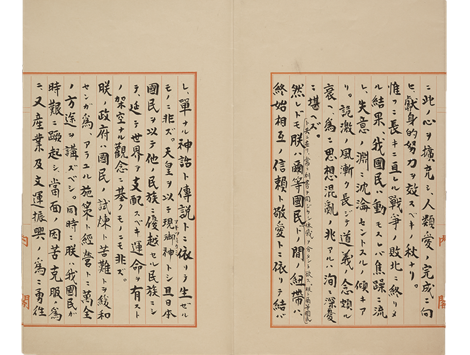 ニ此ノ心ヲ擴充シ、人類愛ノ完成ニ向
ヒ、獻身的努力ヲ效スベキノ秋ナリ。
惟フニ長キニ亘レル戰爭ノ敗北ニ終リタ
ル結果、我國民ハ動モスレバ焦躁ニ流
レ、失意ノ淵ニ沈淪セントスルノ傾キア
リ。詭激ノ風漸ク長ジテ道義ノ念頗ル
衰ヘ、爲ニ思想混亂ノ兆アルハ洵ニ深憂
ニ堪ヘズ。
ト共ニ在リ、常ニ利害ヲ同ジウシ休戚ヲ分タント欲ス。朕ト爾等國民
然レドモ朕ハ爾等國民トノ間ノ紐帶ハ、
終始相互ノ信賴ト敬愛トニ依リテ結バ
レ、單ナル神話ト傳說トニ依リテ生ゼル
モノニ非ズ。天皇ヲ以テ現御神トシ且日本
國民ヲ以テ他ノ民族ニ優越セル民族ニシ
テ、延テ世界ヲ支配スベキ運命ヲ有スト
ノ架空ナル觀念ニ基クモノニモ非ズ。
朕ノ政府ハ國民ノ試煉ト苦難トヲ緩和
センガ爲、アラユル施策ト經營トニ萬全
ノ方途ヲ講ズベシ。同時ニ朕ハ我國民ガ
時艱ニ蹶起シ、當面ノ困苦克服ノ爲
ニ、又產業及文運振興ノ爲ニ勇往